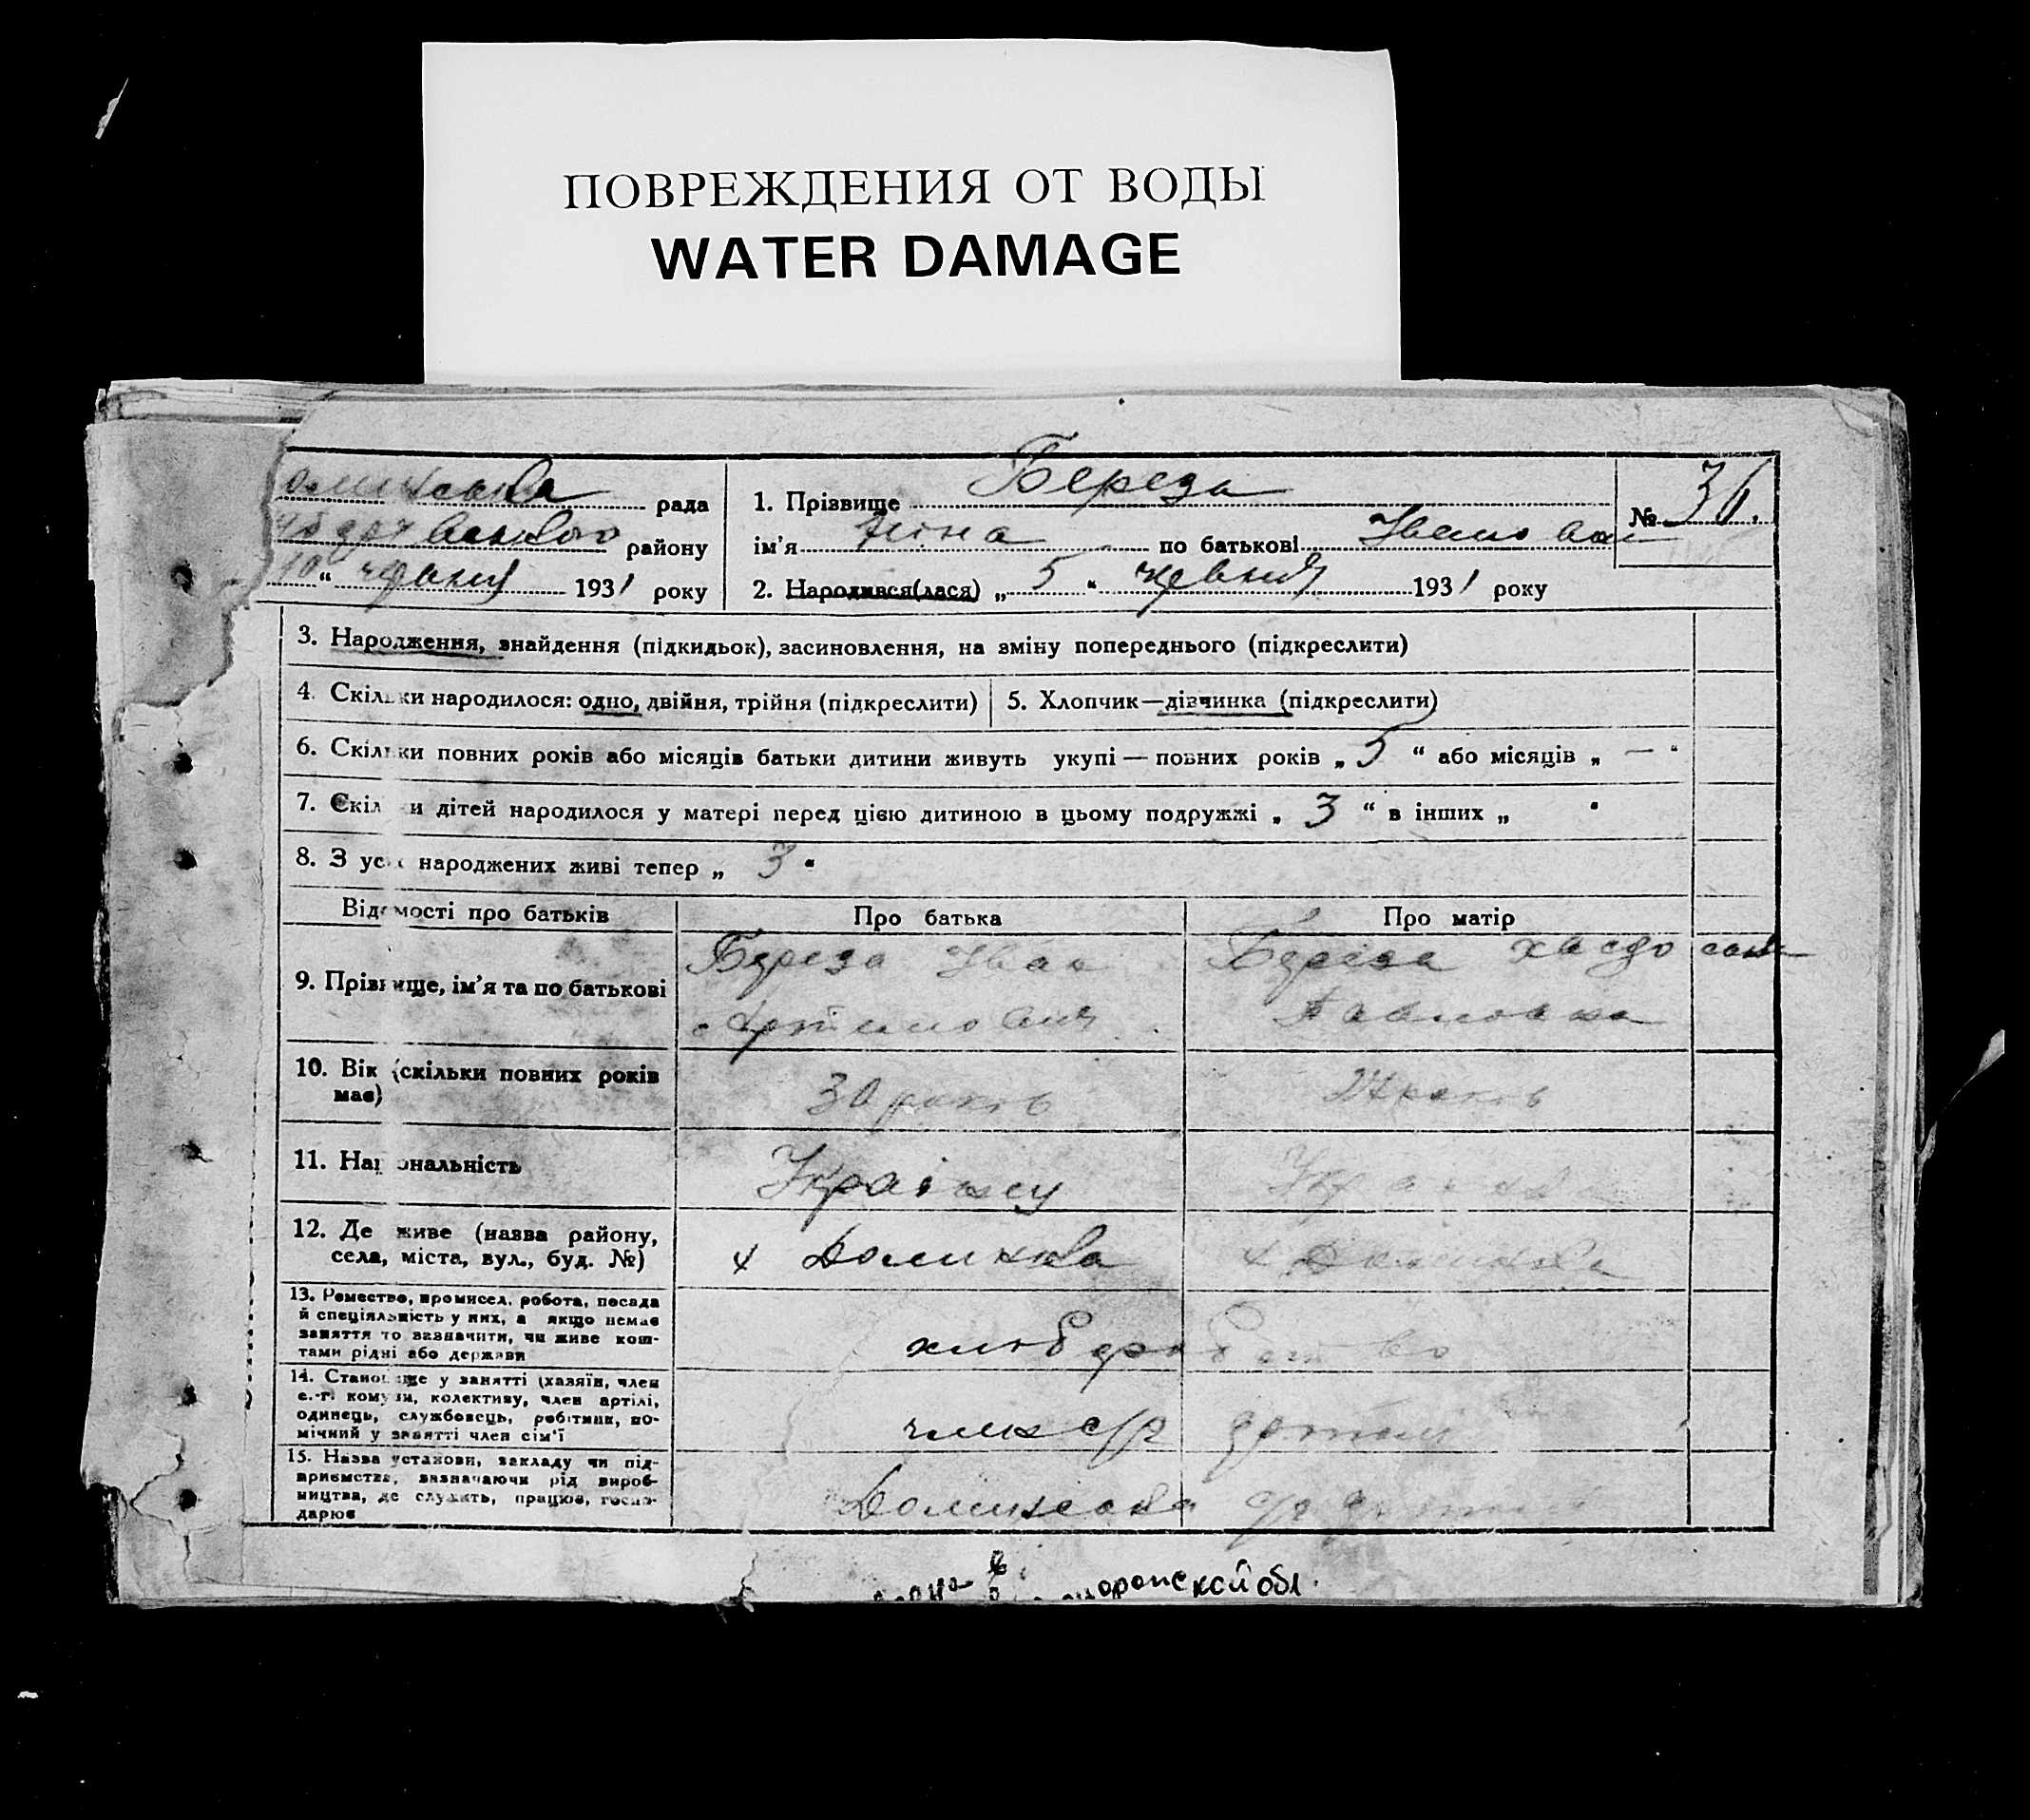 ПОВРЕЖДЕНИЯ ОТ ВОДЫ
WATER DAMAGE
рада
району
10 " червня 1931 року
1. Прізвище Береза
№ 36.
ім'я Ніна по батькові Івановна
2. Народився(лася) „ 5 " червня 1931 року
3. Народження, знайдення (підкидьок), засиновлення, на зміну попереднього (підкреслити)
4. Скільки народилося: одно, двійня, трійня (підкреслити)
5. Хлопчик—дівчинка (підкреслити)
6. Скільки повних років або місяців батьки дитини живуть укупі — повних років „ 5 “ або місяців „ — “
7. Скільки дітей народилося у матері перед цією дитиною в цьому подружжі „ 3 “ в інших „ “
8. З усіх народжених живі тепер „ 3 “
Відомості про батьків
Про батька
Про матір
9. Прізвище, ім'я та по батькові
Береза Іван
Береза
Павловна
10. Вік (скільки повних років має)
30 років
27 років
11. Національність
12. Де живе (назва району,
села, міста, вул., буд. №)
13. Ремество, промисел, робота, посада
й спеціяльність у них, а якщо немає
заняття то зазначити, чи живе кош-
тами рідні або держави
хліборобство
14. Становище у занятті (хазяїн, член
с.-г. комуни, колективу, член артілі,
одинець, службовець, робітник, по-
мічний у занятті член сім'ї
член с/г артіли
15. Назва установи, закладу чи під-
приємства, зазначаючи рід вироб-
ництва, де служить, працює, госпо-
дарює
обл.